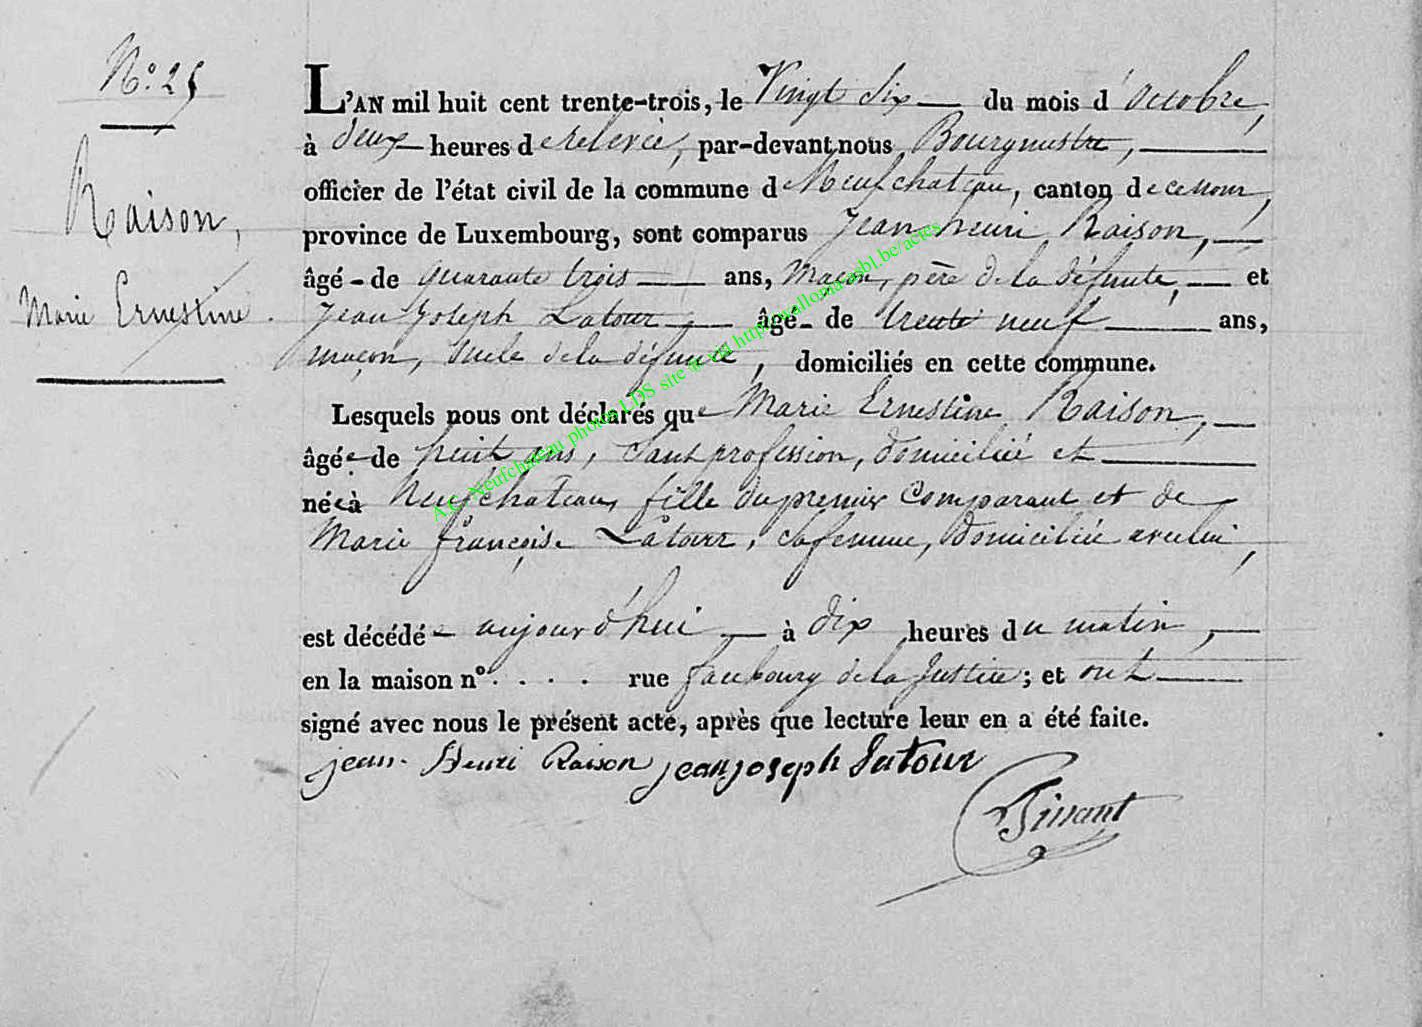 N.º 25
Raison,
Marie Ernestine.
L'AN mil huit cent trente-trois, le Vingt six du mois d'octobre,
à deux heures de relevée, par-devant nous Bourgmestre,
officier de l'état civil de la commune de Neufchateau, canton de ce nom,
province de Luxembourg, sont comparus Jean henri Raison,
âgé de quarante trois ans, maçon, père de la défunte, et
Jean Joseph Latour, âgé de trente neuf ans,
maçon, oncle de la défunte, domiciliés en cette commune.
Lesquels nous ont déclarés que Marie Ernestine Raison,
âgée de huit ans, sans profession, domiciliée et
née à Neufchateau, fille du premier Comparant et de
Marie françoise Latour, sa femme, domiciliée avec lui,
est décédée aujourd'hui à dix heures du matin,
en la maison nº. . . . . rue faubourg de la Justice; et ont
signé avec nous le présent acte, après que lecture leur en a été faite.
jean Henri Raison jean joseph Latour
A.C. Neufchateau photos LDS site @ viii http://wallonia-asbl.be/actes